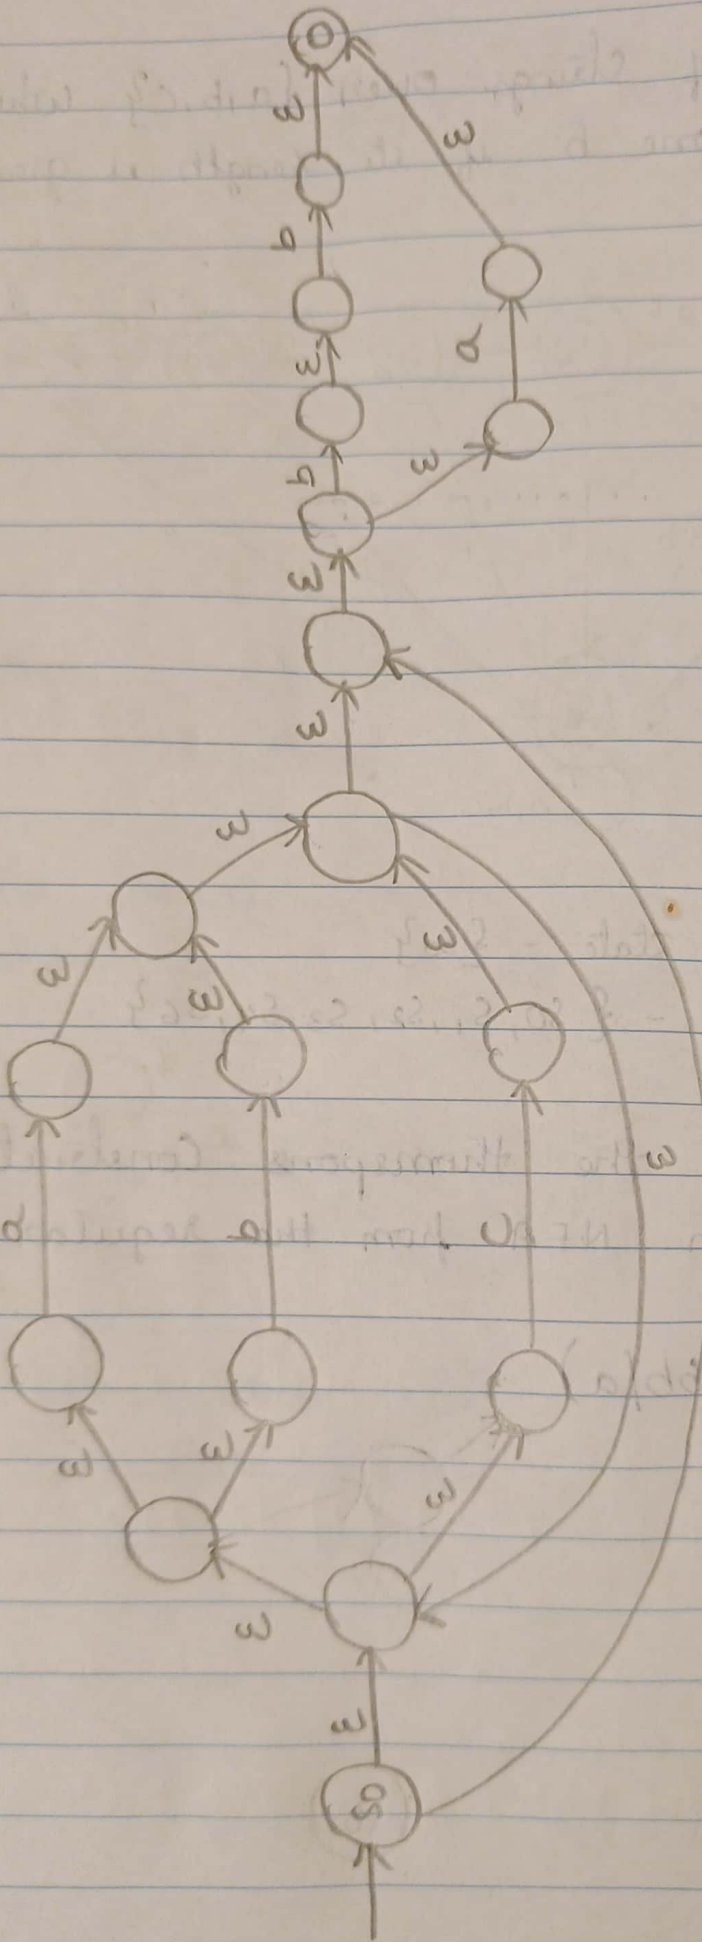 S0
ε
ε
ε
ε
ε
c
b
a
ε
ε
ε
ε
ε
ε
ε
b
ε
ε
a
b
ε
ε